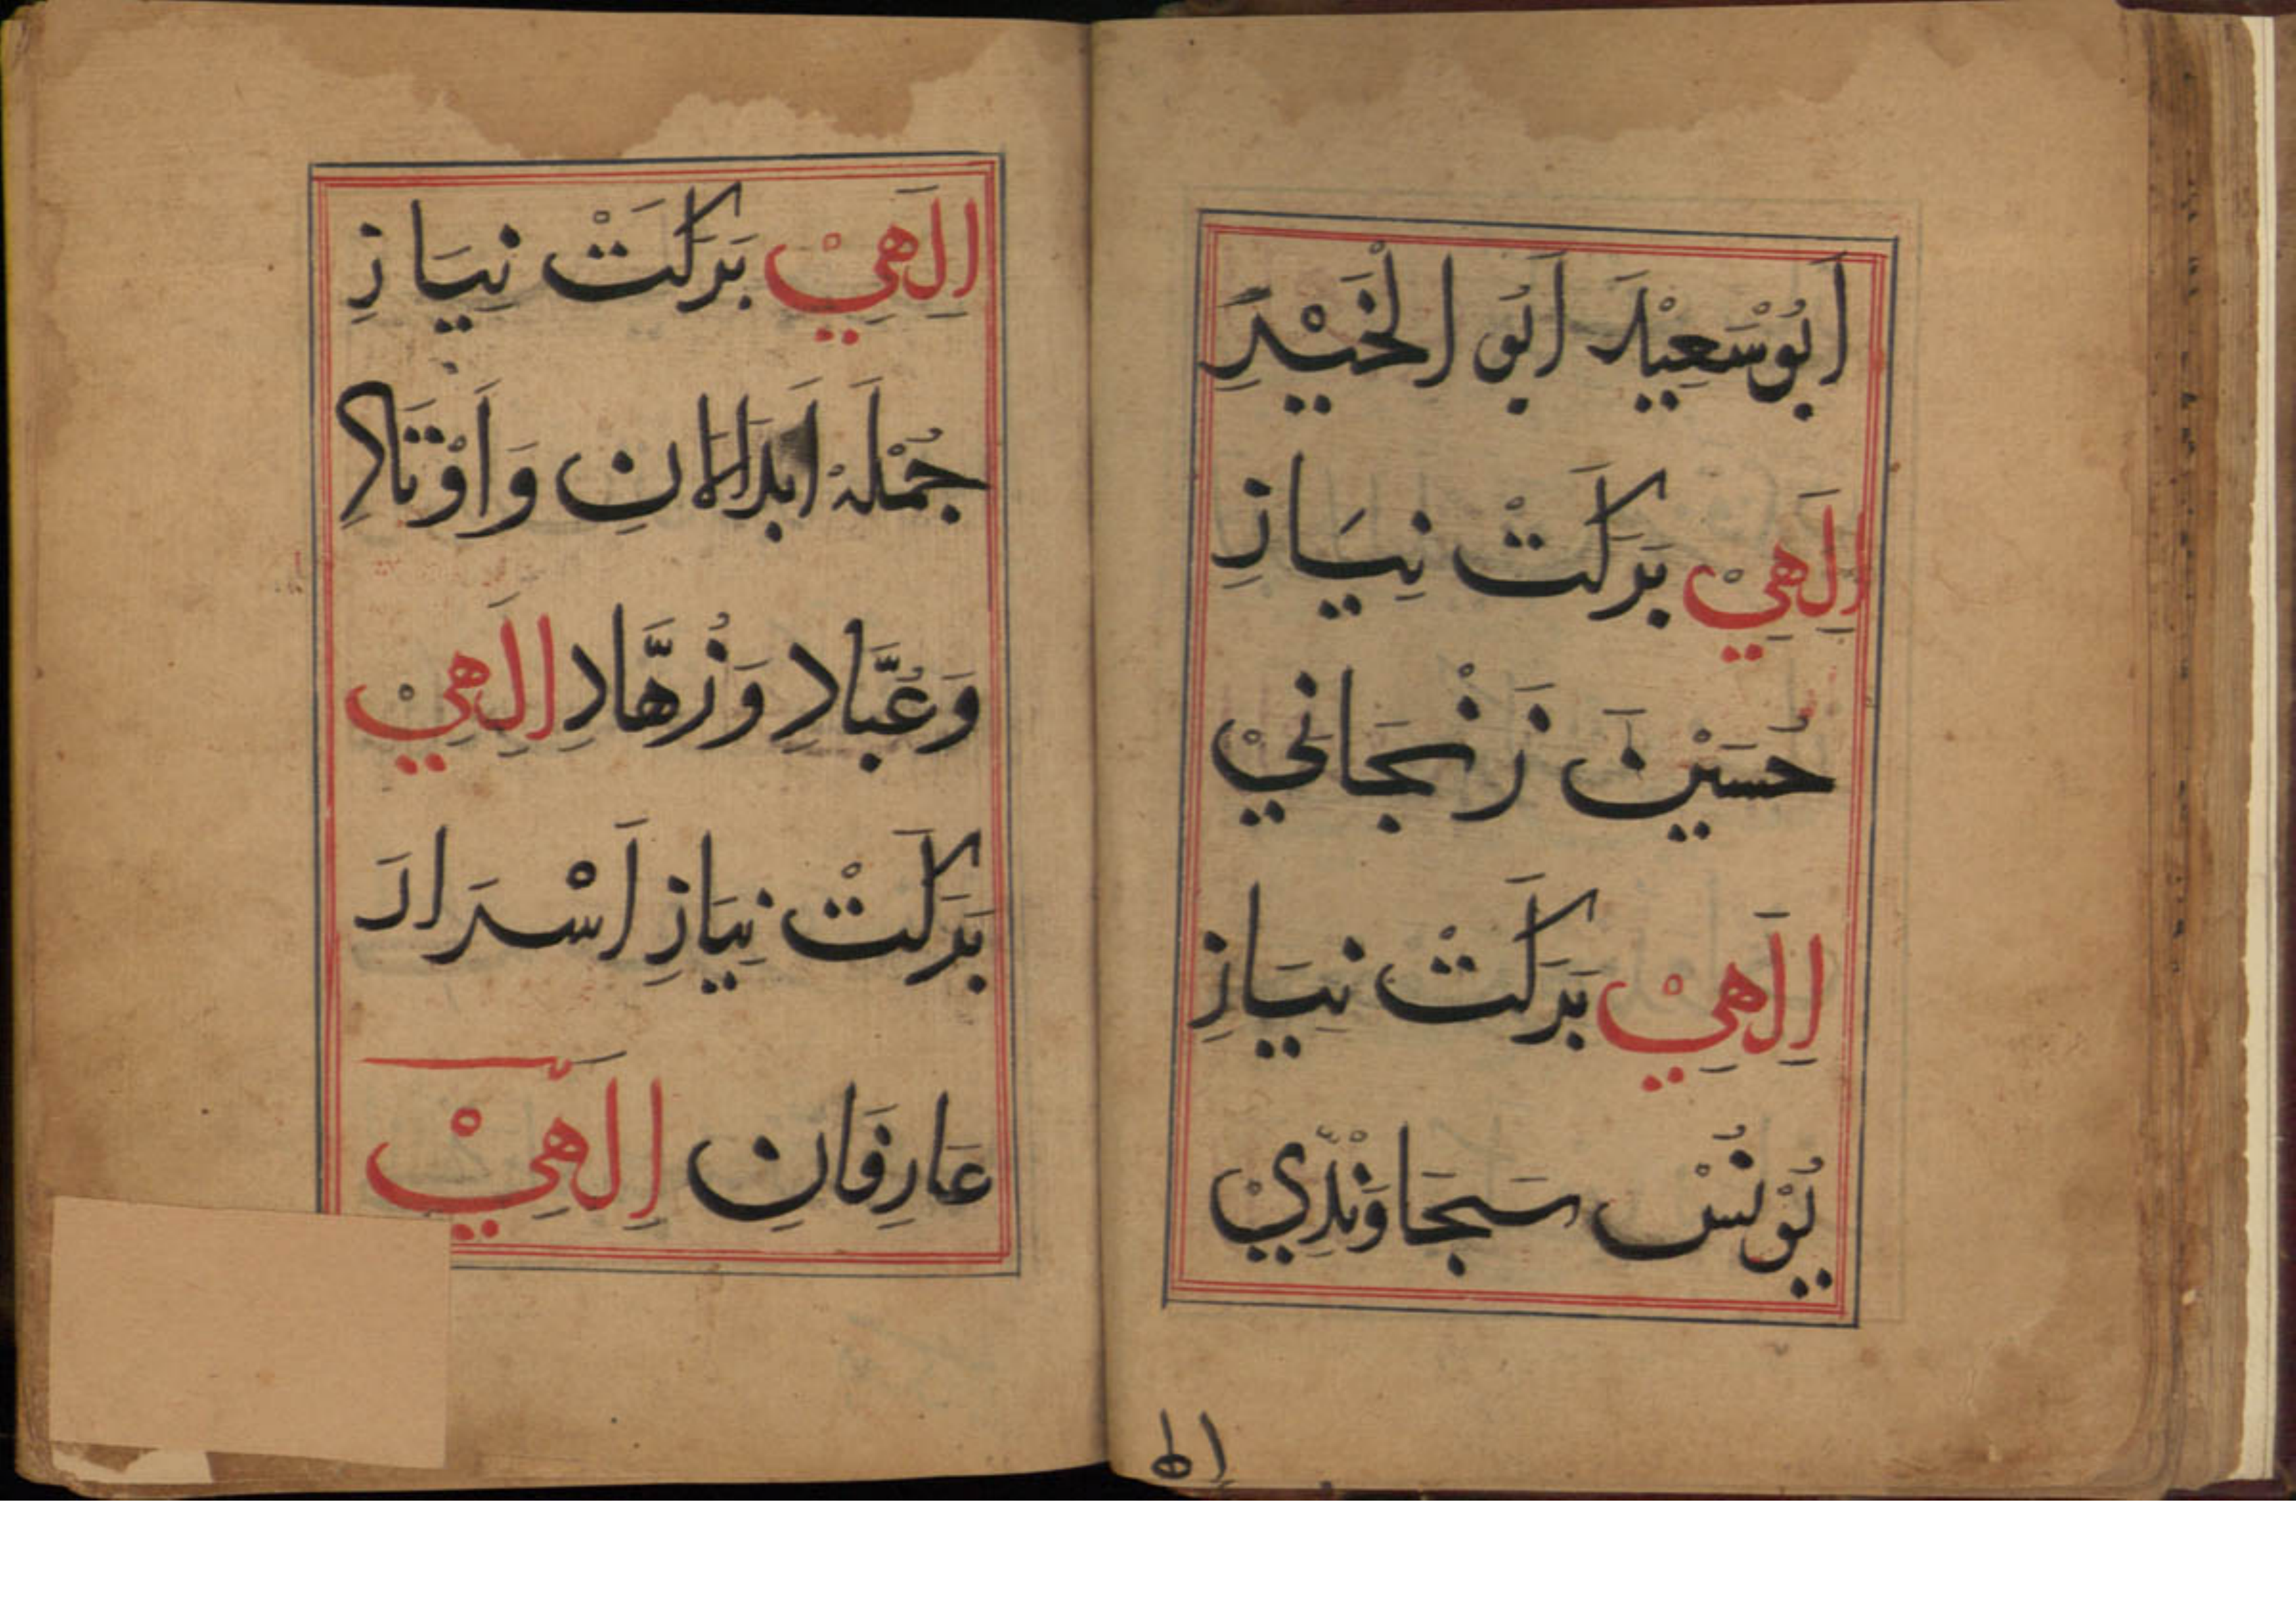 اَبُوْسَعِيْد اَبُو الْخَيْرِ
اِلٰهِيْ بَرَكَتْ نِيَازِ
حُسَيْن زَنْجَانِيْ
اِلٰهِيْ بَرَكَتْ نِيَازِ
يُوْنُسْ سَجَاوَنْدِيْ
اله
اِلٰهِيْ بَرَكَتْ نِيَازِ
جُمْلَهْ اَبْدَالَانِ وَاَوْتَادِ
وَعُبَّادِ وَزُهَّادِ اِلٰهِيْ
بَرَكَتْ نِيَازِ اَسْرَارَ
عَارِفَانِ اِلٰهِيْ